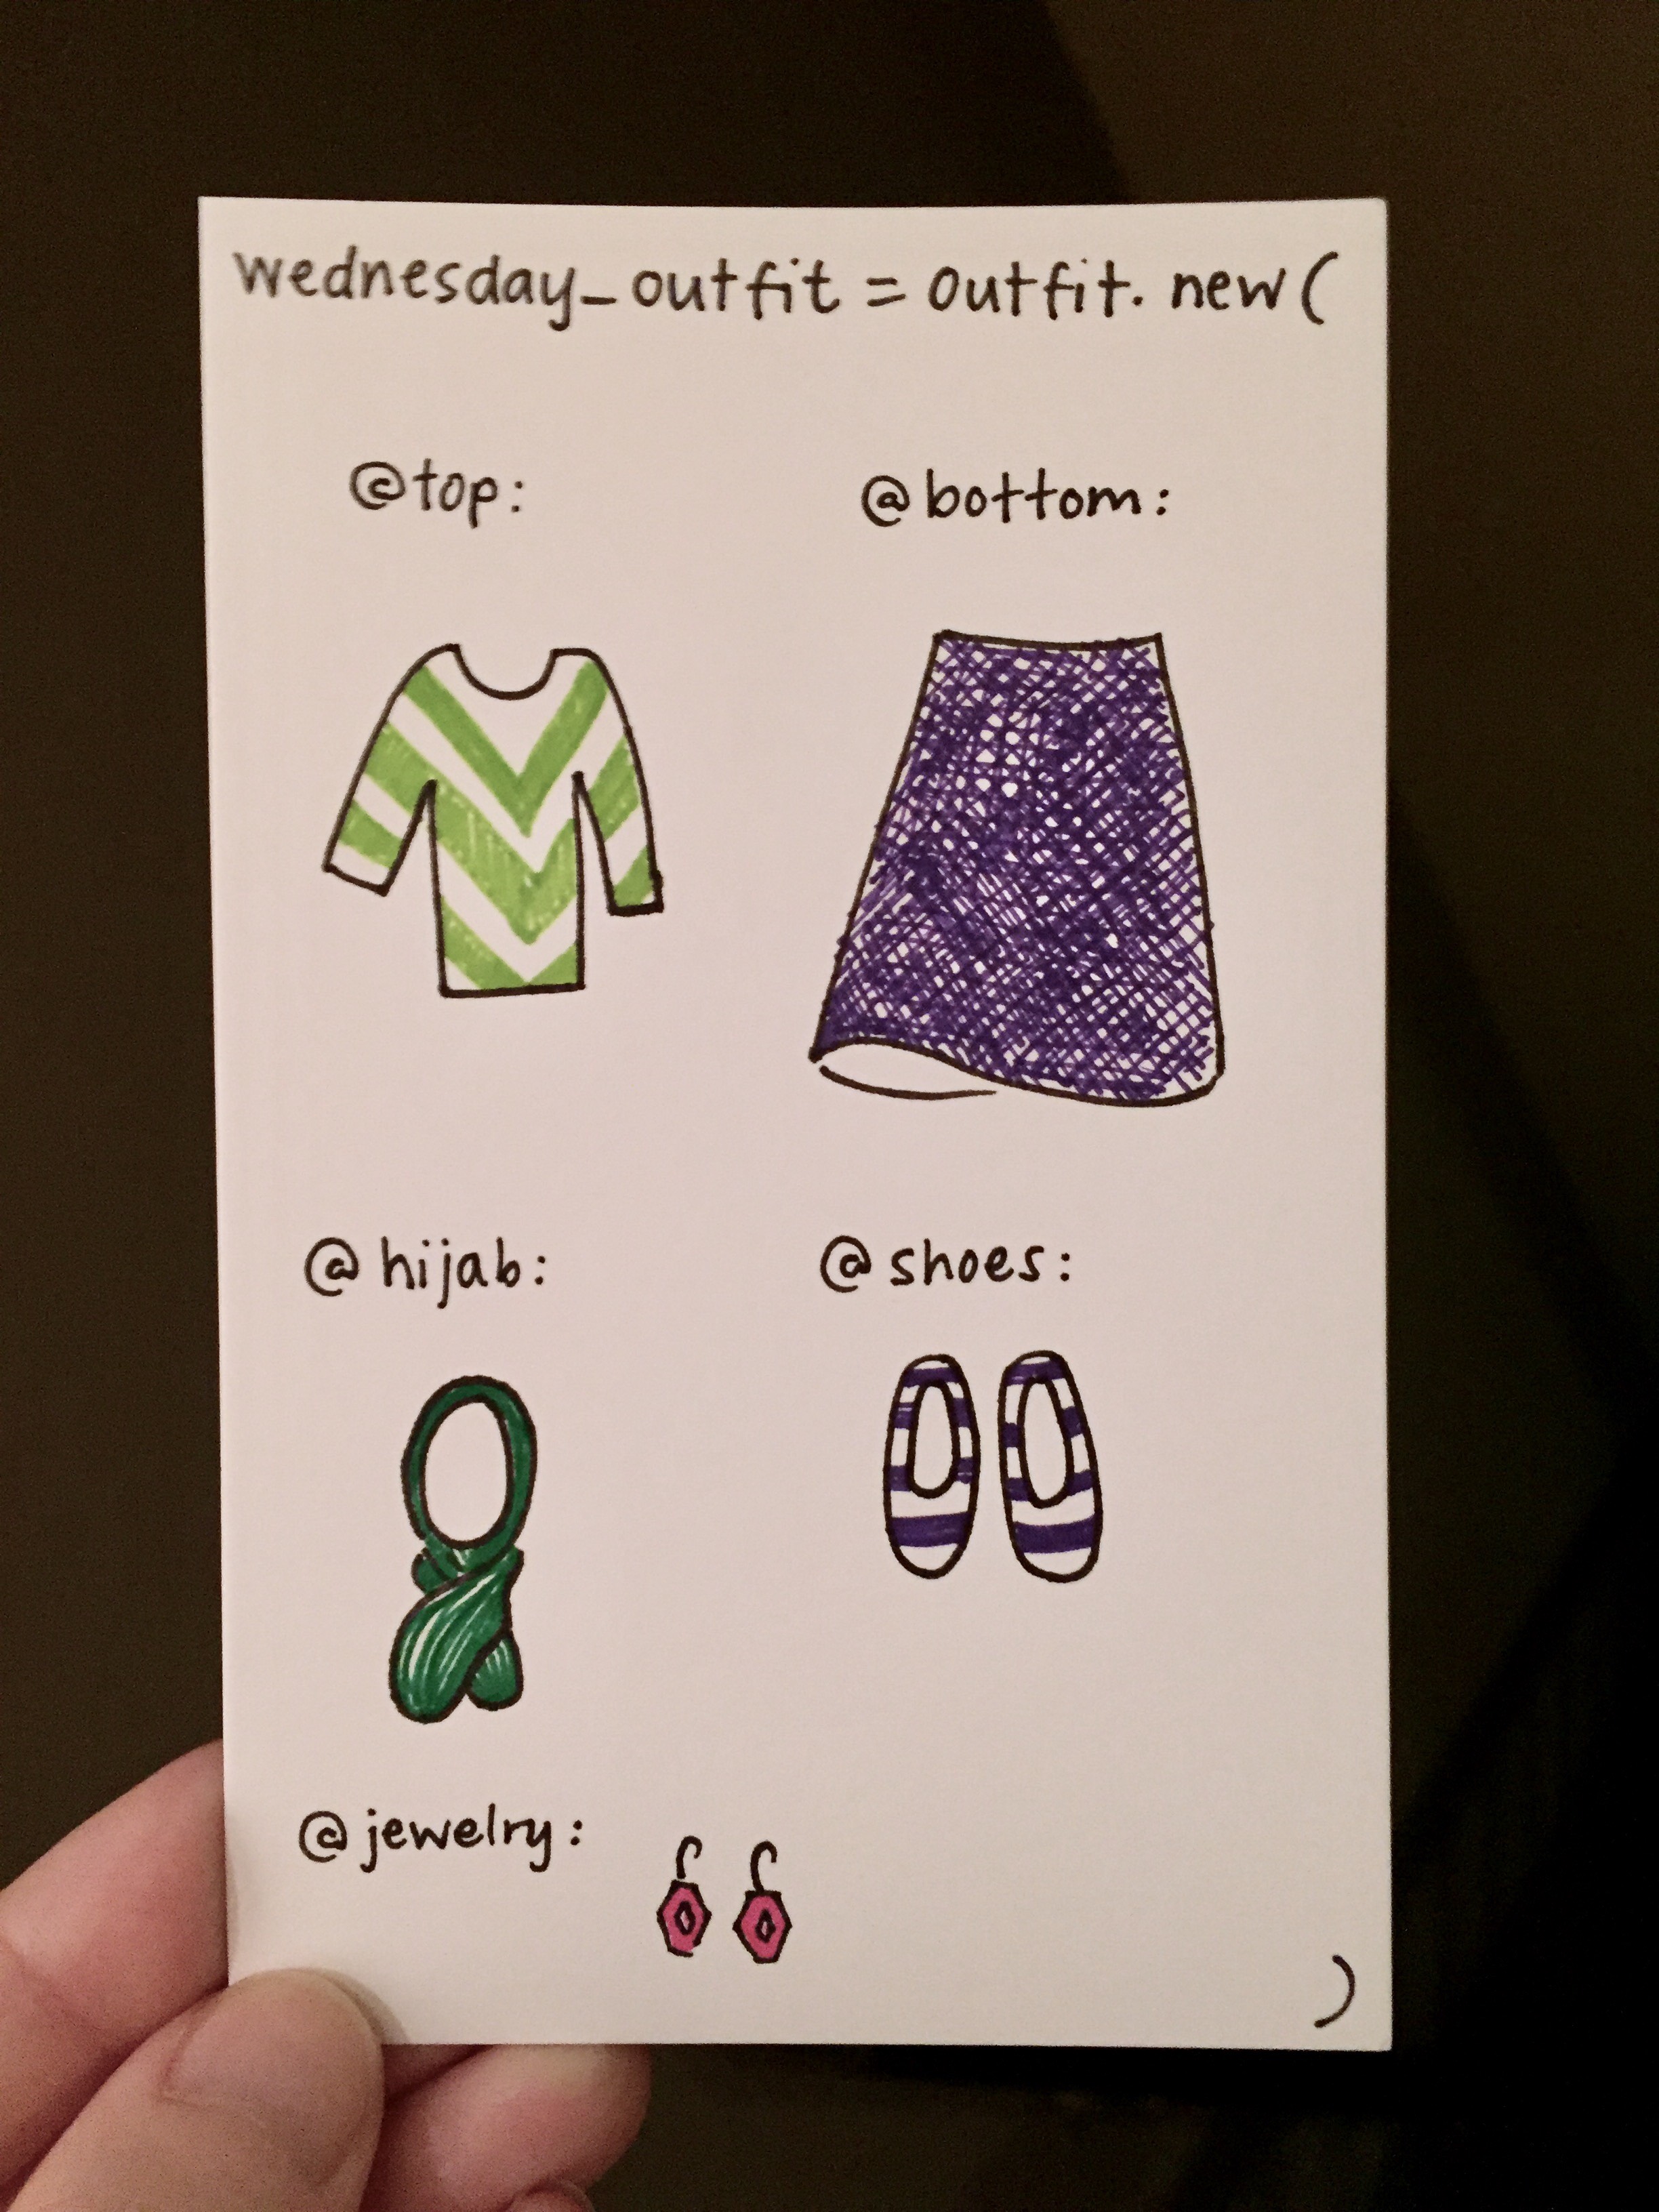 wednesday_outfit = outfit.new(
@top:
@bottom:
@hijab:
@shoes:
@jewelry:
)